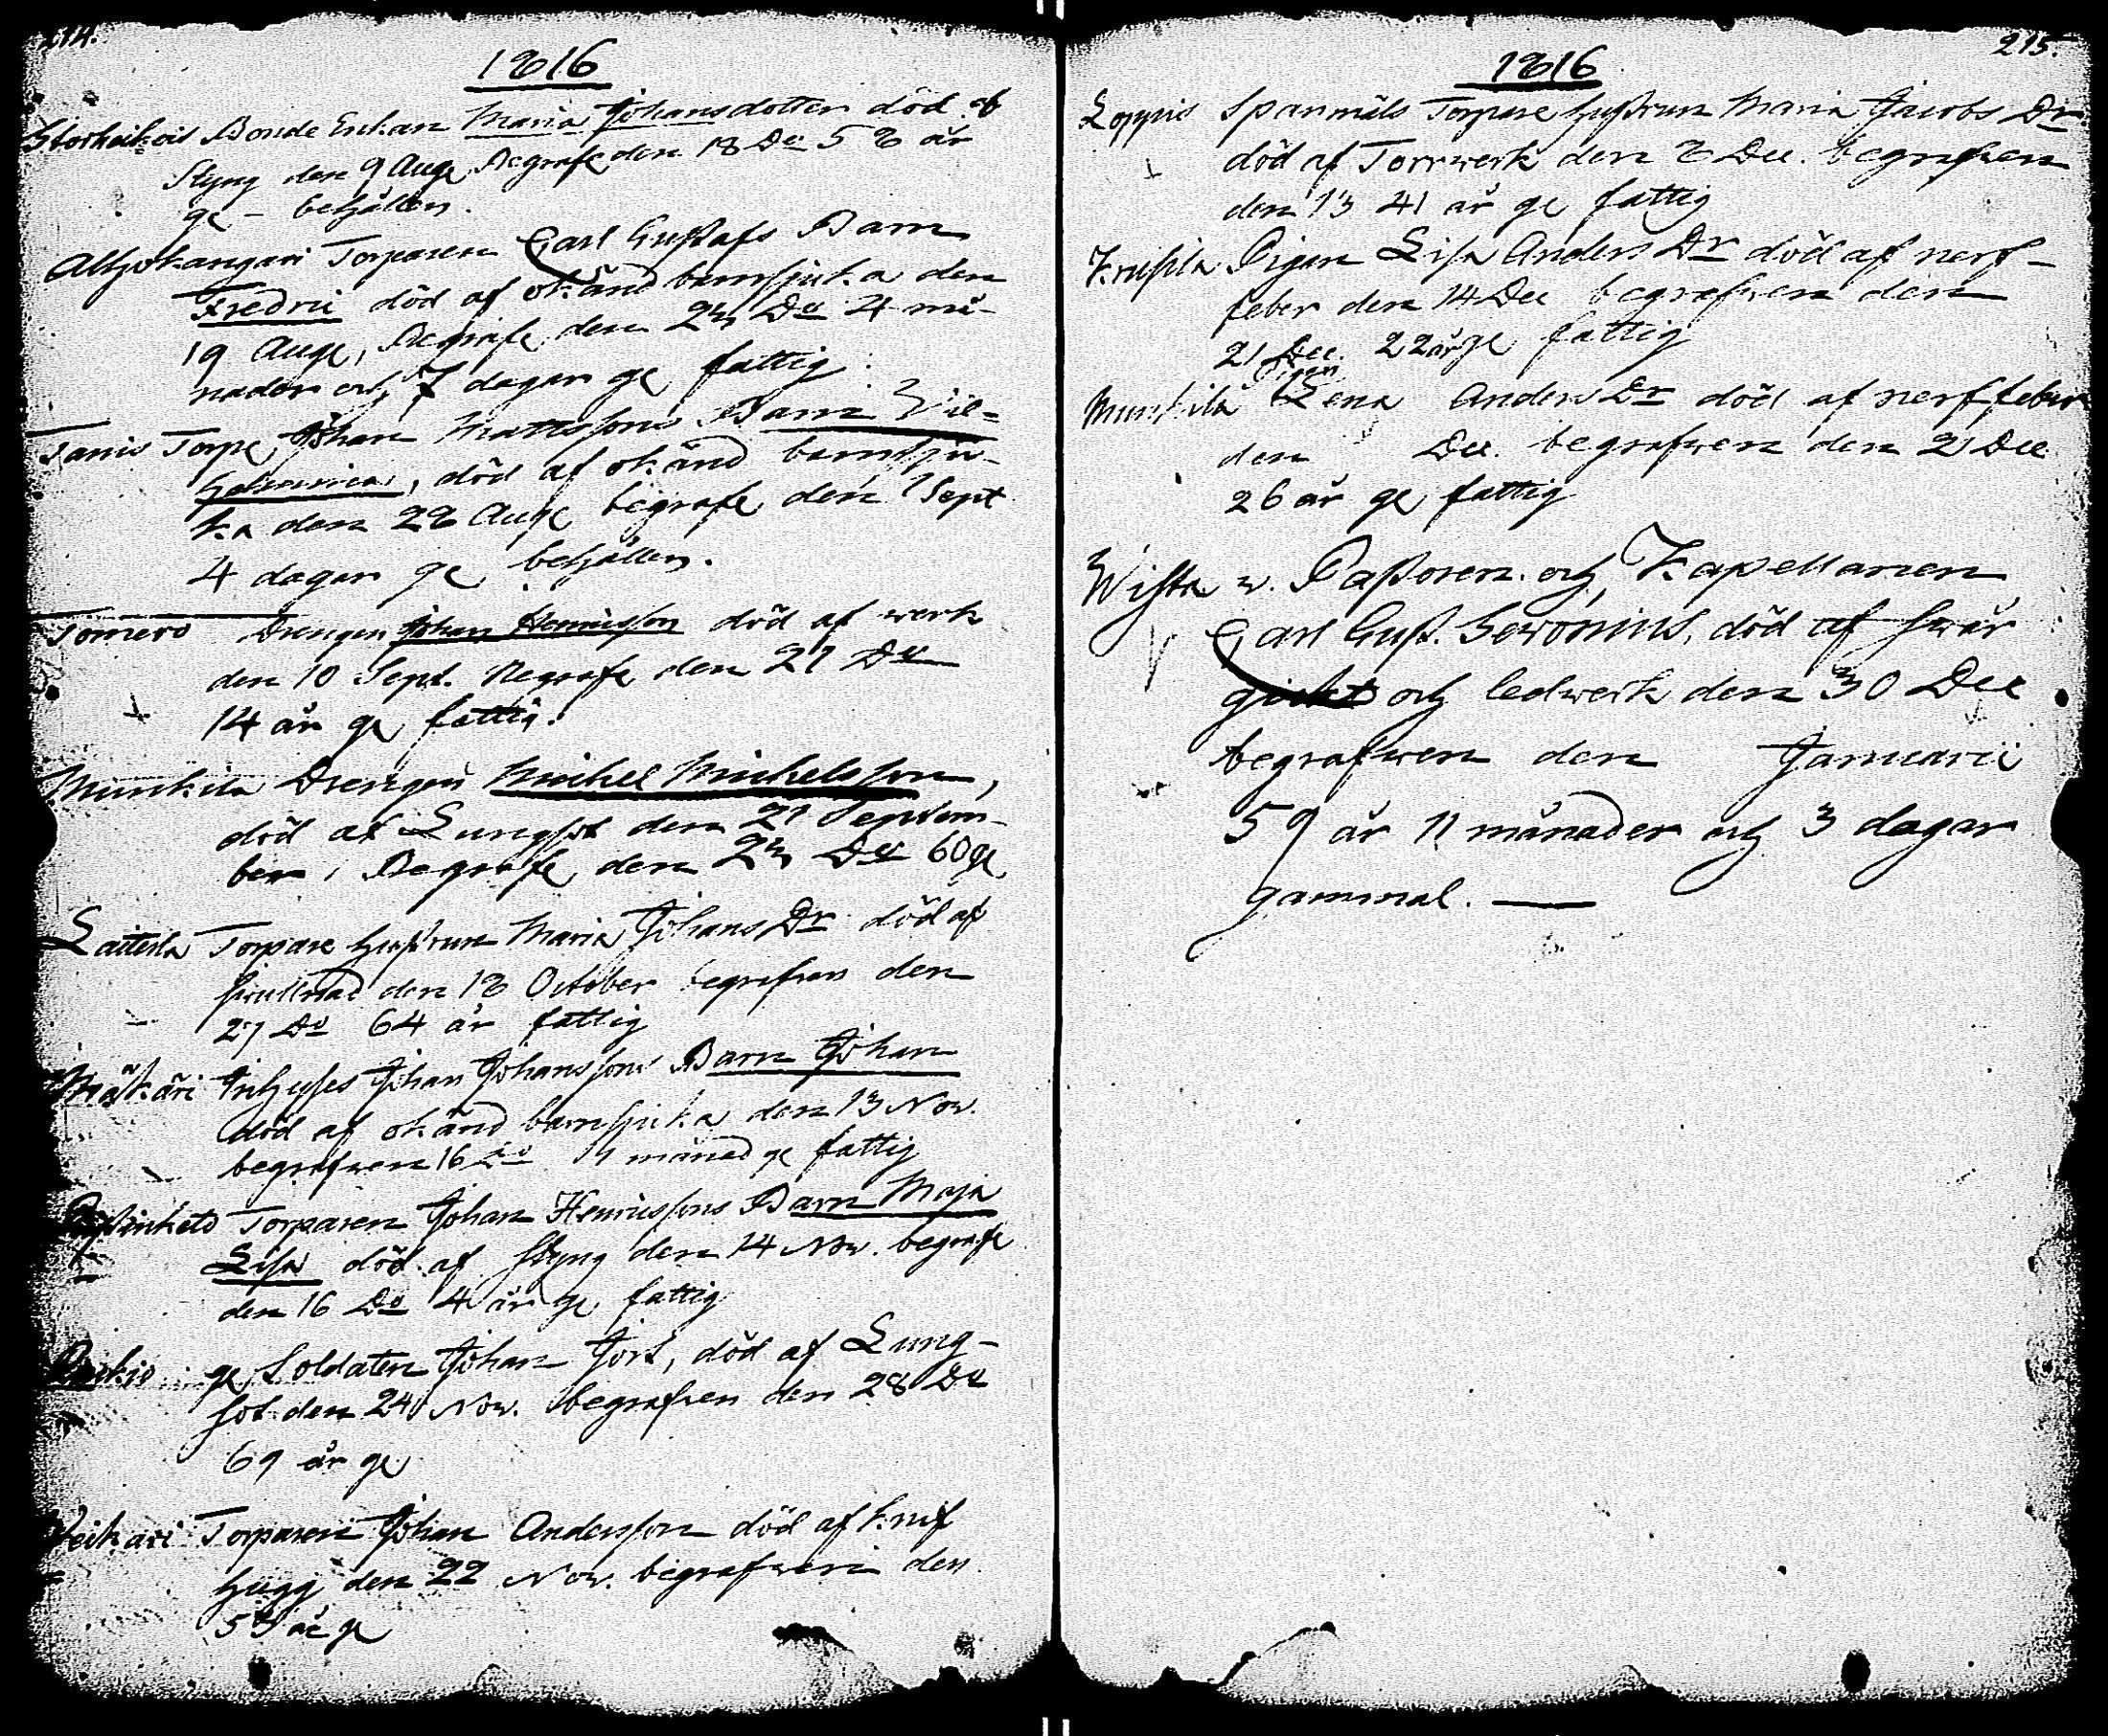 214.
1816
Storheikois Bonde Enkan Maria Johansdotter död af
Styng den 9 Aug. Begrafe den 18 Do 58 år
ge - behållen.
Torparen Carl Gustafs Barn
Fredric död af okänd barnsjuka den
19 Aug, Begrafe den 25 Do 4 må-
nader och 7 dagar ge fattig.
Tanis Torp. Johan Mattssons Barn Vil-
helmina, död af okänd barnsju-
ka den 28 Aug begrafe den 1 Sept
4 dagar ge behållen.
Tomero Drengen Johan Henricsson död af werk
den 10 Sept. Begrafe den 21 Do
14 år ge fattig.
Munkila Drengen Michel Michelsson,
död af Lungsot den 21 Septem-
ber, Begrafe den 25 Do 60 ge
Laiterla Torpare hustrun Maria Johans Dr död af
den 18 October begrafven den
27 Do 64 år fattig
Inhyses Johan Johanssons Barn Johan
död af okänd barnsjuka den 13 Nov.
begrafven 16 Do 1 månad ge fattig
Torparen Johan Henricssons Barn Maja
Lisa död af styng den 14 Nov. begrafe
den 16 Do 4 år ge fattig
ge Soldaten Johan Hjort, död af Lung-
sot den 24 Nov. begrafven den 28 Do
69 år ge
Veikari Torparen Johan Andersson död af knif
hugg den 22 Nov. begrafven den
53 år ge
215.
1816
Loppis Spanmåls Torpare hustrun Maria Jacobs Dr
död af Torrwerk den 8 Dec. begrafven
den 13 41 år ge fattig
Krusila Pigan Lisa Anders Dr död af nerf-
feber den 14 Dec begrafven den
21 Dec. 22 år ge fattig
Pigan
Munkila Lena Anders Dr död af nerffeber
den Dec. begrafven den 21 Dec
26 år ge fattig
Wista v. Pastoren och Kapellanen
Carl Gust. Geronius, död af swår
gickt och ledwerk den 30 Dec
begrafwen den Januarii
59 år 11 månader och 3 dagar
gammal.